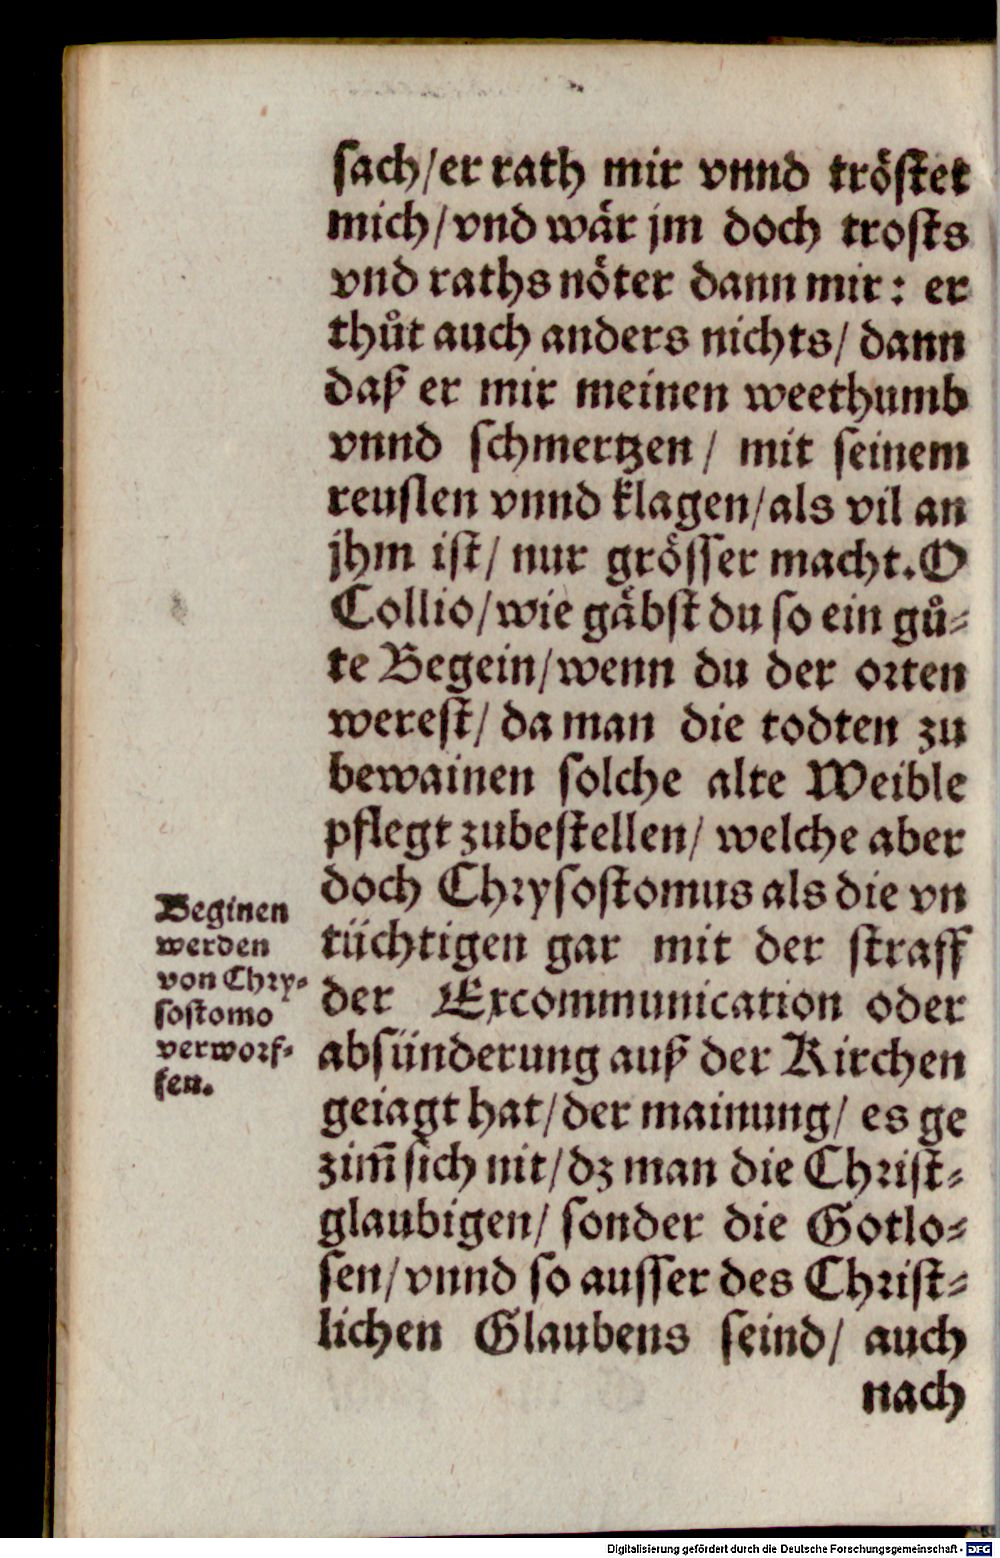 sach/er rath mir vnnd tröstet
mich/vnd wår jm doch trosts
vnd raths nöter dann mir: er
thůt auch anders nichts/ dann
daß er mir meinen weethumb
vnnd schmertzen/ mit seinem
reuslen vnnd klagen/als vil an
jhm ist/ nur grösser macht. O
Collio/wie gåbst du so ein gů-
te Begein/wenn du der orten
werest/ da man die todten zu
bewainen solche alte Weible
pflegt zubestellen/ welche aber
doch Chrysostomus als die vn
tüchtigen gar mit der straff
der Excommunication oder
absünderung auß der Kirchen
geiagt hat/der mainung/ es ge
zim̃ sich nit/dz man die Christ-
glaubigen/ sonder die Gotlo-
sen/vnnd so ausser des Christ-
lichen Glaubens seind/ auch
nach
Beginen
werden
von Chry-
sostomo
verworf-
fen.
Digitalisierung gefördert durch die Deutsche Forschungsgemeinschaft - DFG